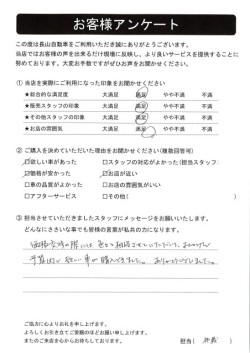 お客様アンケート
この度は長山自動車をご利用いただき誠にありがとうございます。
当店ではお客様の声を出来るだけ現場に反映し、より良いサービスを提供することに
努めております。大変お手数ですがぜひお声をお聞かせください。
① 当店を実際にご利用になった印象をお聞かせください
★総合的な満足度 大満足 満足 やや不満 不満
★販売スタッフの印象 大満足 満足 やや不満 不満
★その他スタッフの印象 大満足 満足 やや不満 不満
★お店の雰囲気 大満足 満足 やや不満 不満
② ご購入を決めていただいた理由をお聞かせください(複数回答可)
□欲しい車があった □スタッフの対応がよかった(担当スタッフ:
□価格が安かった □お店が近い
□車の品質がよかった □お店の雰囲気がいい
□アフターサービス □その他(
③ 担当させていただきましたスタッフにメッセージをお願いいたします。
どんなにささいな事でも皆様の言葉が私共の力になります。
価格交渉の際には 色々と相談させていただいて、おかげで
予算内で 欲しい車が購入できました。ありがとうございました。
ご協力に心よりお礼を申し上げます。
よろしくお引き立てご愛顧のほどお願い申し上げます。
またのご来店を心からお待ちしております。 担当(